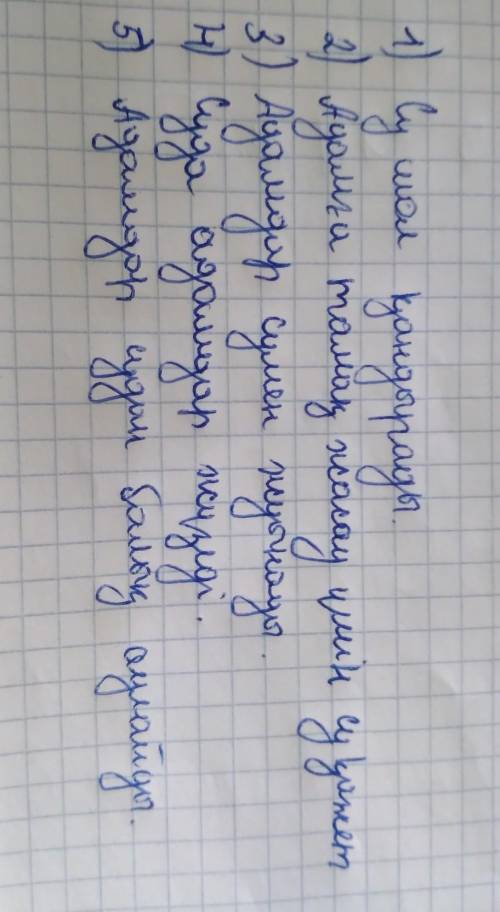 1) Су шөл қандырады.
2) Адамға тамақ жасау үшін су қажет
3) Адамдар сумен жуынады.
4) Суда адамдар жүзеді.
5) Адамдар судан балық аулайды.